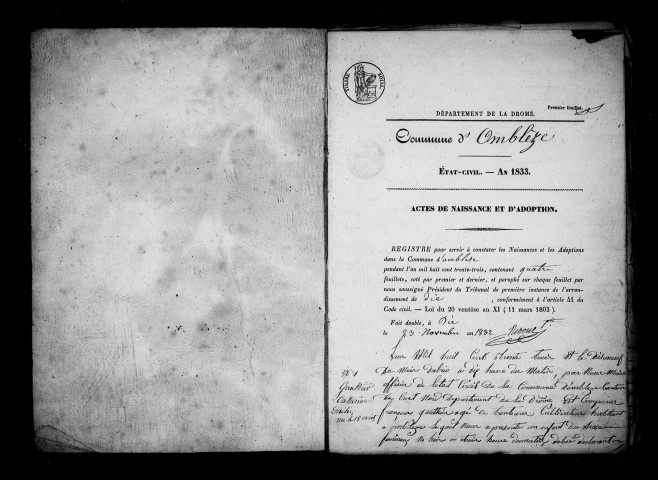 Premier feuillet.
DÉPARTEMENT DE LA DROME.
Commune d'Omblèze
ÉTAT-CIVIL. — AN 1833.
ACTES DE NAISSANCE ET D'ADOPTION.
REGISTRE pour servir à constater les Naissances et les Adoptions
dans la Commune d'omblèze
pendant l'an mil huit cent trente-trois, contenant quatre
feuillets, coté par premier et dernier, et paraphé sur chaque feuillet par
nous soussigné Président du Tribunal de première instance de l'arron-
dissement de Die, conformément à l'article 41 du
Code civil. — Loi du 20 ventôse an XI (11 mars 1803)
Fait double, à Die
le 23 Novembre an 1832
Lan Mil huit Cent trente trois Et le Dixneuf
du Mois Dabril à dix heure du Matin, par Nous Maire
officier de Letat Civil De La Commune Domblèze Canton
Du Crest Nord Département de La Drôme Est Comparu
francois gautier agé de trente ans Cultivateur habitant
a omblèze Lequel Nous a presenté un enfant du Sexe
N° 1
Gautier